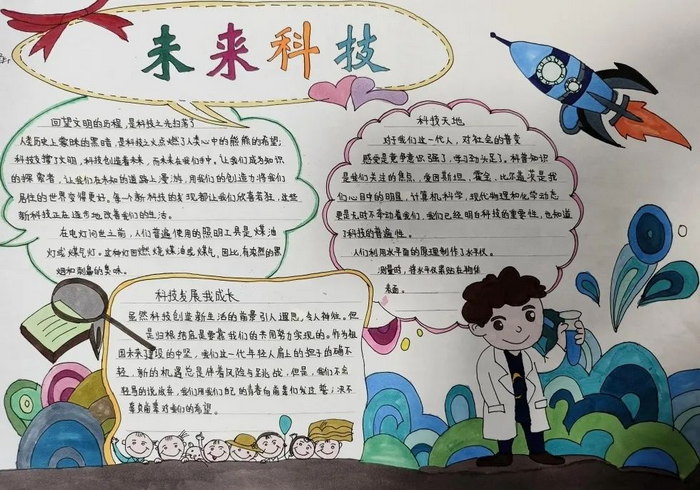 未来科技
回望文明的历程,是科技之光扫荡了
人类历史上蒙昧的黑暗,是科技之火点燃了人类心中的熊熊的希望;
科技支撑了文明,科技创造着未来,而未来在我们手中,让我们成为知识
的探索者,让我们在未知的道路上漫游,用我们的创造力将我们
居住的世界变得更好。每一个新科技的发现都让我们欣喜若狂,这些
新科技正在造方地改善我们的生活。
在电灯问世之前,人们普遍使用的照明工具是煤油
灯或煤气灯。这种灯因燃烧煤油或煤气,因此,有浓烈的黑
烟和刺鼻的臭味。
科技天地
对于我们这一代人,对社会的普变
感受是竞争意识强了,学习劲头足了,科普知识
是我们关注的焦点,爱因斯坦,霍金,比尔盖茨是我
们心目中的明星,计算机科学,现代物理和化学动态
更是无时不牵动着我们,我们已经明白科技的重要性,也知道
了科技的普遍性。
人们利用水平面的原理制作了水平仪。
测量时,将水平仪紧贴在物体
表面。
科技发展我成长
虽然科技创造新生活的前景引人遐思,令人神往。但
是归根结底是要靠我们的共同努力实现的。作为祖
国未来建设的中坚,我们这一代年轻人肩上的担子的确不
轻,新的机遇总是伴着风险与挑战,但是,我们不会
轻易的说放弃,我们用我们自己的青春向前辈们发过誓:决不
辜负前辈对我们的希望。